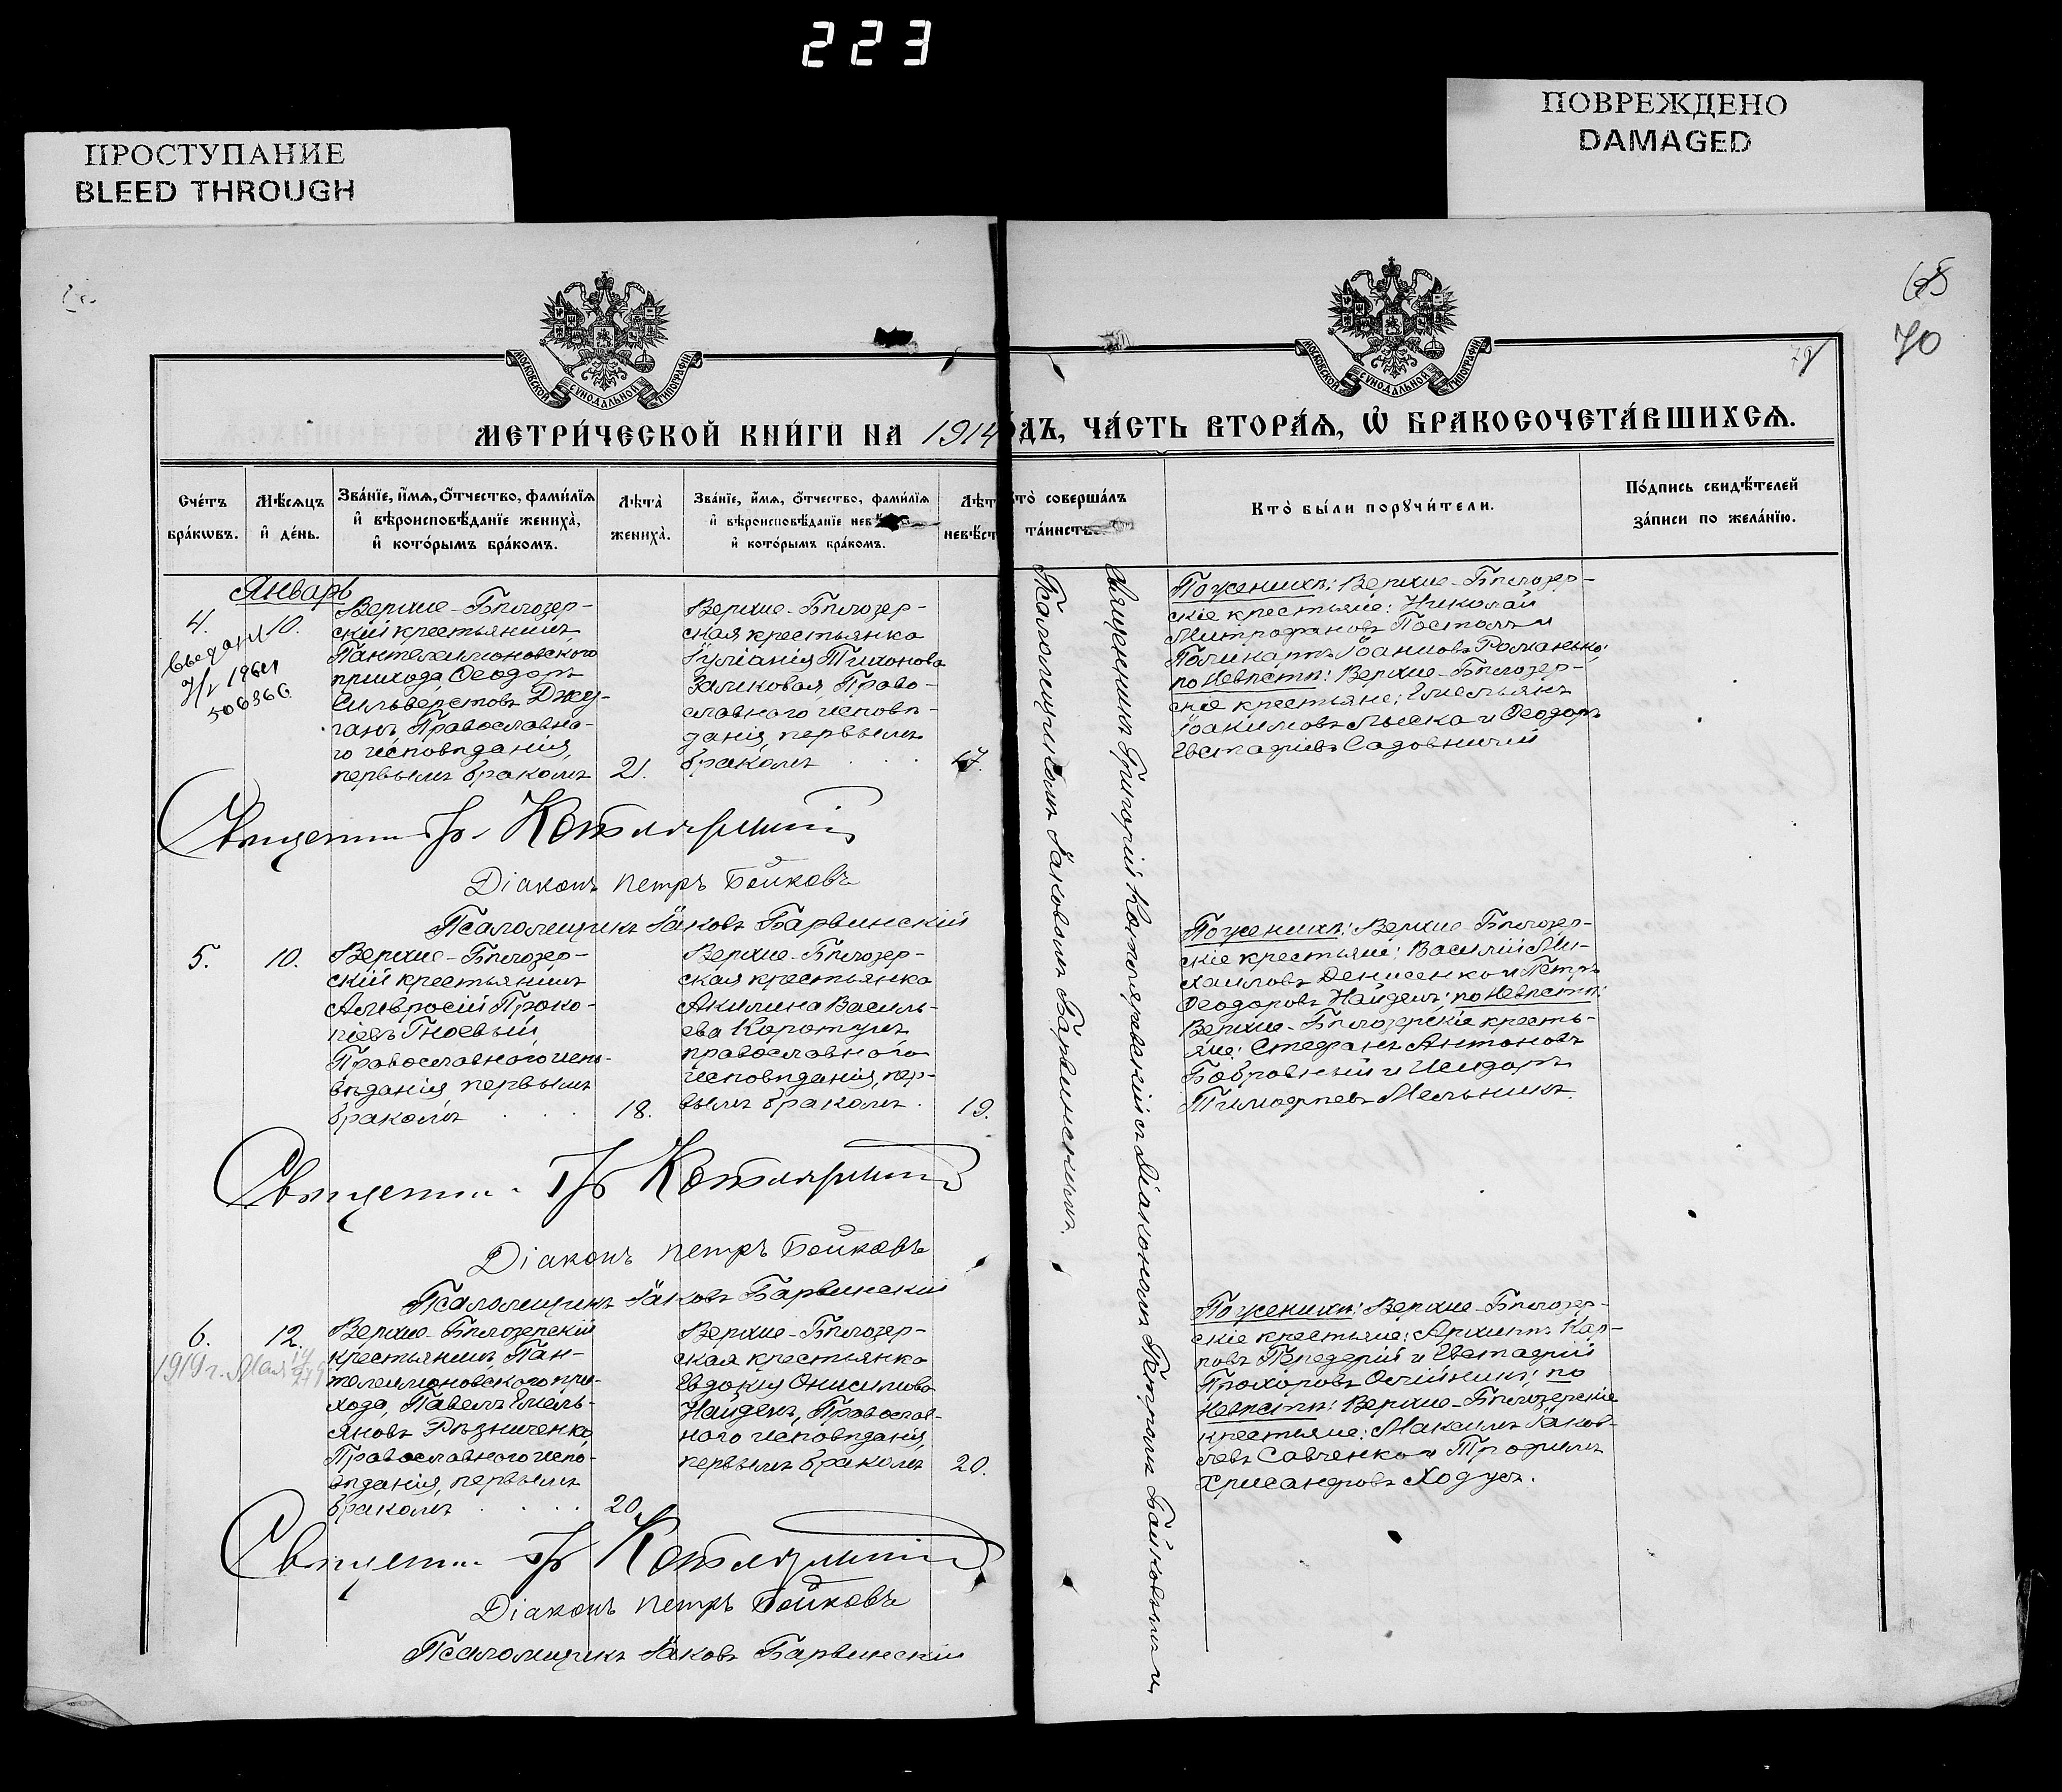 223
ПРОСТУПАНИЕ
BLEED THROUGH
ПОВРЕЖДЕНО
DAMAGED
70
МОСКОВСКОЙ СѴНОДАЛЬНОЙ ТИПОГРАФІИ
МОСКОВСКОЙ СѴНОДАЛЬНОЙ ТИПОГРАФІИ
МЕТРИ́ЧЕСКОЙ КНИ́ГИ НА 1914
ДЪ, ЧА́СТЬ ВТОРА́Ѧ, Ѿ БРАКОСОЧЕТА́ВШИХСѦ.
Сче́тъ
бра́кѡвъ.
Мѣ́сяцъ
и҆ де́нь.
Зва́нїе, и҆́мя, ѻ҆́тчество, фами́лїя
и҆ вѣроисповѣ́данїе жениха̀,
и҆ кото́рымъ бра́комъ.
Лѣта̀
жениха̀.
Зва́нїе, и҆́мя, ѻ҆́тчество, фами́лїя
и҆ вѣроисповѣ́данїе нев
и҆ кото́рымъ бра́комъ.
Лѣт
невѣст
то̀ соверша́лъ
та́инств
Кто̀ бы́ли порꙋчи́тели.
По́дпись свидѣ́телей
за́писи по жела́нїю.
Январь
4.
10.
Верхне-Бѣлозер-
скій крестьянинъ
Пантелимоновского
прихода Ѳеодоръ
Сильверстовъ Джу-
ганъ, Православна-
го исповѣданія,
первымъ бракомъ
21.
Верхне-Бѣлозер-
ская крестьянка
Іуліанія Тихонова
Заликовая, Право-
славного исповѣ-
данія, первымъ
бракомъ
17.
506366
Священникъ Григорій Котляревскій съ Діакономъ Петромъ Байковымъ и
Псаломщикомъ Іаковомъ Барвинскимъ.
По женихѣ: Верхне-Бѣлозер-
скіе крестьяне: Николай
Митрофановъ Постолъ и
Поликарпъ Іоанновъ Романенко;
по невѣстѣ: Верхне-Бѣлозер-
скіе крестьяне: Емельянъ
Іоакимовъ Лыска и Ѳеодоръ
Евстафіевъ Садовничій
Священни. Гр. Котляревскій
Діаконъ Петръ Байковъ
Псаломщикъ Іаковъ Барвинскій
5.
10.
Верхне-Бѣлозер-
скій крестьянинъ
Амвросій Проко-
піевъ Гноевый,
Православного испо-
вѣданія первымъ
бракомъ
18.
Верхне-Бѣлозер-
ская крестьянка
Акилина Василь-
ева Коротунъ
православного
исповѣданія, пер-
вымъ бракомъ.
19.
По женихѣ: Верхне-Бѣлозер-
скіе крестьяне: Василій Ми-
хаиловъ Денисенко и Петръ
Ѳеодоровъ Найденъ; по невѣстѣ:
Верхне-Бѣлозерскіе кресть-
яне: Стефанъ Антоновъ
Бобровный и Исидоръ
Тимофѣевъ Мельникъ.
Священни. Гр Котляревскій
Діаконъ Петръ Байковъ
Псаломщикъ Іаковъ Барвинскій
6.
12.
1919 г. Мая
Верхне-Бѣлозерскій
крестьянинъ, Пан-
телеимоновского при-
хода, Павелъ Емель-
яновъ Рѣзниченко,
Православного испо-
вѣданія, первымъ
бракомъ
20.
Верхне-Бѣлозер-
ская крестьянка
Евдокія Онисимова
Найденъ, Православ-
ного исповѣданія,
первымъ бракомъ
20.
По женихѣ: Верхне-Бѣлозер-
скіе крестьяне: Архипъ Кар-
повъ Передерій и Евстафій
Прохоровъ Олійникъ; по
невѣстѣ: Верхне-Бѣлозерскіе
крестьяне: Максимъ Іаков-
левъ Савченко и Трофимъ
Хрисанфовъ Ходусъ.
Священни. Гр Котляревскій
Діаконъ Петръ Байковъ
Псаломщикъ Іаковъ Барвинскій